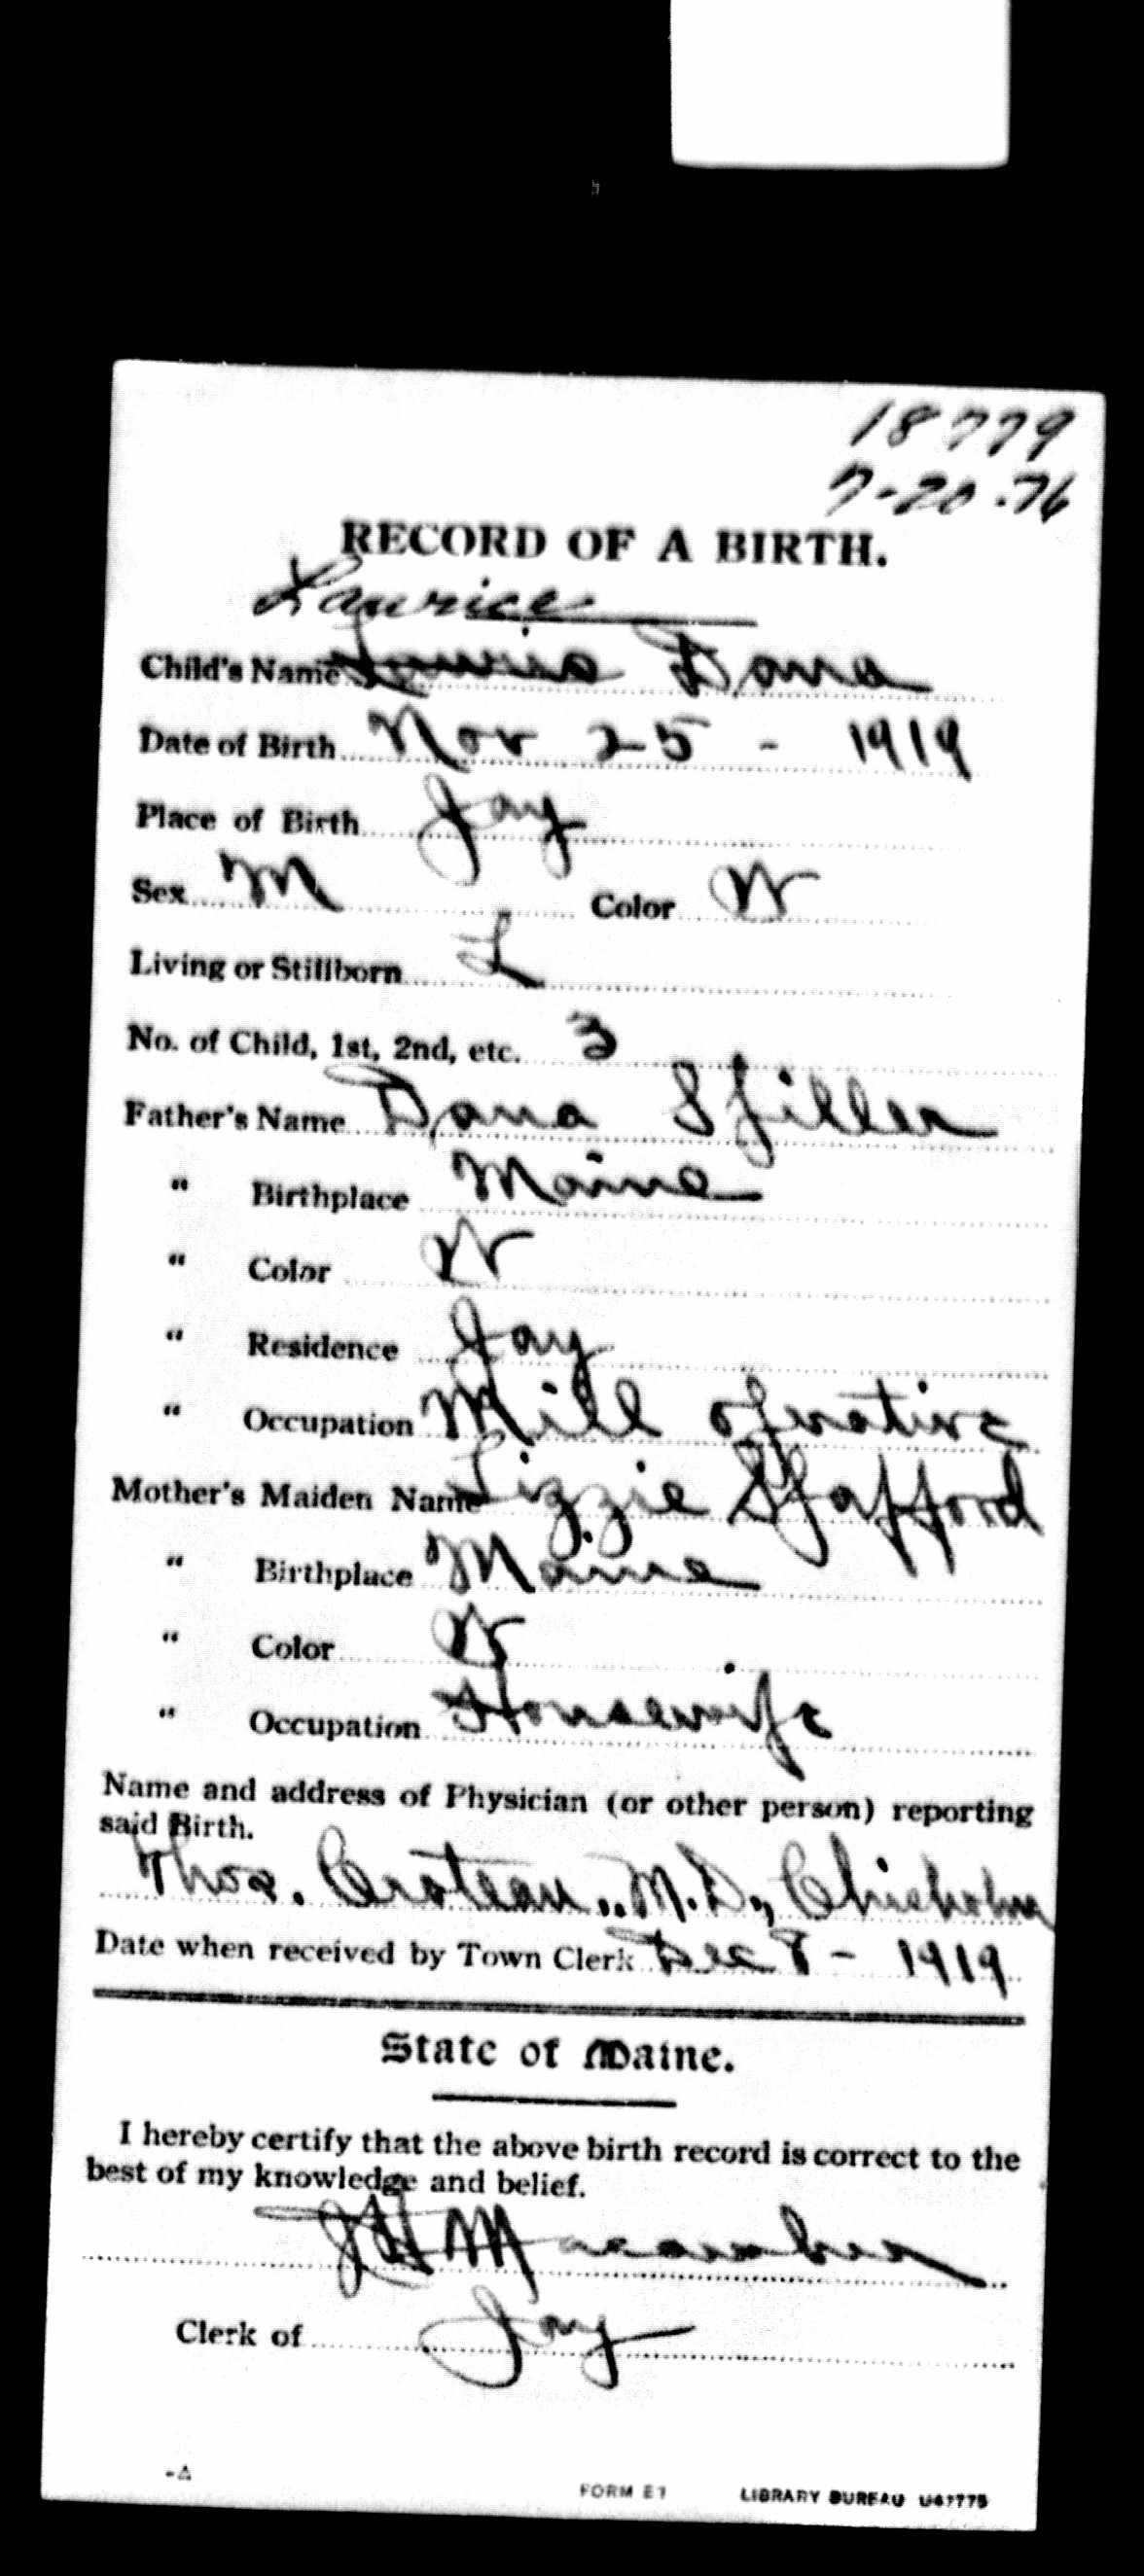 18779
7-20-76
RECORD OF A BIRTH.
Laurice
Child's Name Dana
Date of Birth Nov 25 - 1919
Place of Birth Jay
Sex M Color W
Living or Stillborn L
No. of Child, 1st, 2nd, etc. 3
Father's Name Dana Spiller
" Birthplace Maine
" Color W
" Residence Jay
" Occupation Mill operative
Mother's Maiden Name Lizzie Spafford
" Birthplace Maine
" Color W
" Occupation Housewife
Name and address of Physician (or other person) reporting
said Birth.
Thos. Croteau, M.D., Chisholm
Date when received by Town Clerk Dec 8 - 1919
State of Maine.
I hereby certify that the above birth record is correct to the
best of my knowledge and belief.
J H Macomber
Clerk of Jay
FORM E1 LIBRARY BUREAU